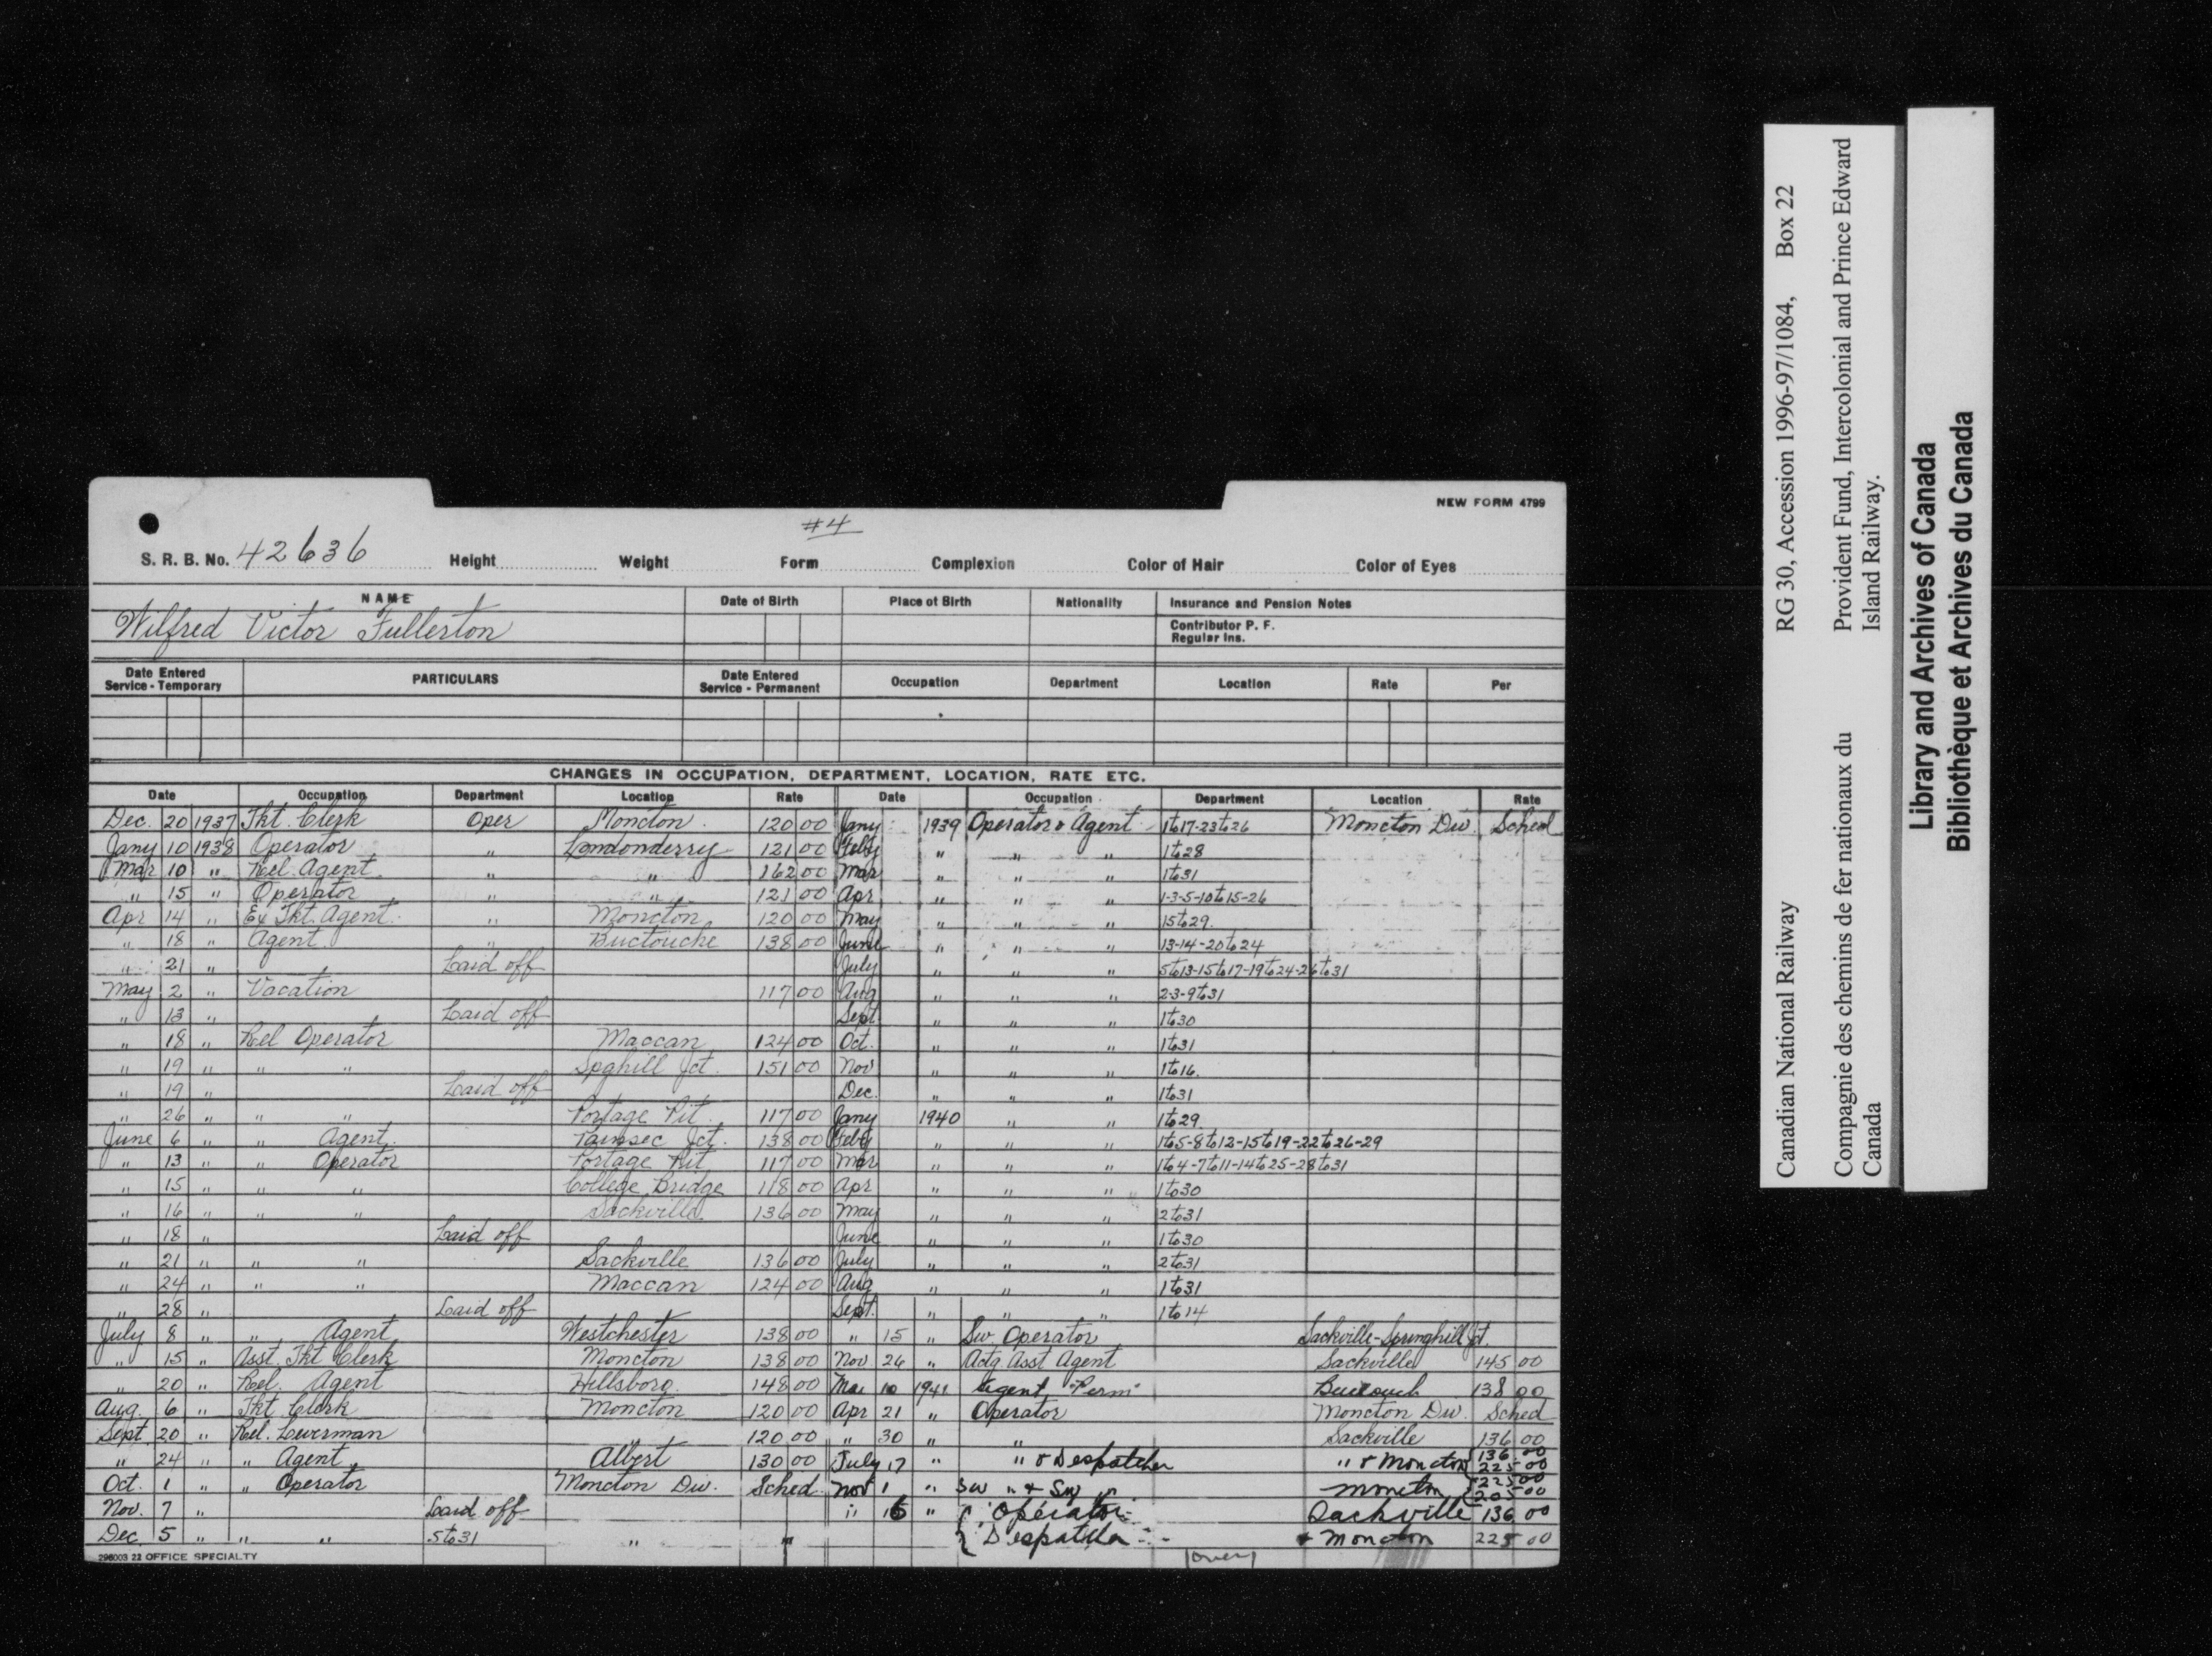 NEW FORM 4799
#4
S. R. B. No. 42636 Height Weight Form Complexion Color of Hair Color of Eyes
NAME Date of Birth Place of Birth Nationality Insurance and Pension Notes
Wilfred Victor Fullerton Contributor P. F.
Regular Ins.
Date Entered Service - Temporary PARTICULARS Date Entered Service - Permanent Occupation Department Location Rate Per
CHANGES IN OCCUPATION, DEPARTMENT, LOCATION, RATE ETC.
Date Occupation Department Location Rate Date Occupation Department Location Rate
Dec. 20 1937 Tkt. Clerk Oper Moncton 120 00 Jany 1939 Operator & Agent 1to17-23to26 Moncton Div. Sched
Jany 10 1938 Operator " Londonderry 121 00 Feby " " " 1to28
Mar 10 " Rel. Agent " " 162 00 Mar " " " 1to31
" 15 " Operator " " 121 00 Apr " " " 1-3-5-10to15-26
Apr 14 " Ex Tkt. Agent " Moncton 120 00 May " " " 15to29
" 18 " Agent " Buctouche 138 00 June " " " 13-14-20to24
" 21 " Laid off July " " " 5to13-15to17-19to24-26to31
May 2 " Vacation 117 00 Aug " " " 2-3-9to31
" 13 " Laid off Sept " " " 1to30
" 18 " Rel Operator Maccan 124 00 Oct. " " " 1to31
" 19 " " " Spghill Jct. 151 00 Nov " " " 1to16
" 19 " Laid off Dec. " " " 1to31
" 26 " " " Portage Pit 117 00 Jany 1940 " " 1to29
June 6 " " Agent Painsec Jct. 138 00 Feby " " " 1to5-8to12-15to19-22to26-29
" 13 " " Operator Portage Pit 117 00 Mar " " " 1to4-7to11-14to25-28to31
" 15 " " " College Bridge 118 00 Apr " " " 1to30
" 16 " " " Sackville 136 00 May " " " 2to31
" 18 " Laid off June " " " 1to30
" 21 " " " Sackville 136 00 July " " " 2to31
" 24 " " " Maccan 124 00 Aug " " " 1to31
" 28 " Laid off Sept. " " " 1to14
July 8 " " Agent Westchester 138 00 " 15 " Sw. Operator Sackville-Springhill Jct.
" 15 " Asst. Tkt Clerk Moncton 138 00 Nov 26 " Actg Asst Agent Sackville 145 00
" 20 " Rel. Agent Hillsboro 148 00 Mar 10 1941 Agent "Perm" 138 00
Aug. 6 " Tkt Clerk Moncton 120 00 Apr 21 " Operator Moncton Div. Sched
Sept 20 " Rel. Leverman " 120 00 " 30 " " Sackville 136 00
" 24 " " Agent Albert 130 00 July 17 " " & Despatcher " & Moncton 136 00 225 00
Oct. 1 " " Operator Moncton Div. Sched Nov 1 " Sw " & Sw " Moncton 225 00 205 00
Nov. 7 " Laid off " " Operator Sackville 136 00
Dec. 5 " " " 5to31 " " Despatcher & Moncton 225 00
296003 22 OFFICE SPECIALTY
(over)
Canadian National Railway RG 30, Accession 1996-97/1084, Box 22
Compagnie des chemins de fer nationaux du Canada Provident Fund, Intercolonial and Prince Edward Island Railway.
Library and Archives of Canada
Bibliothèque et Archives du Canada